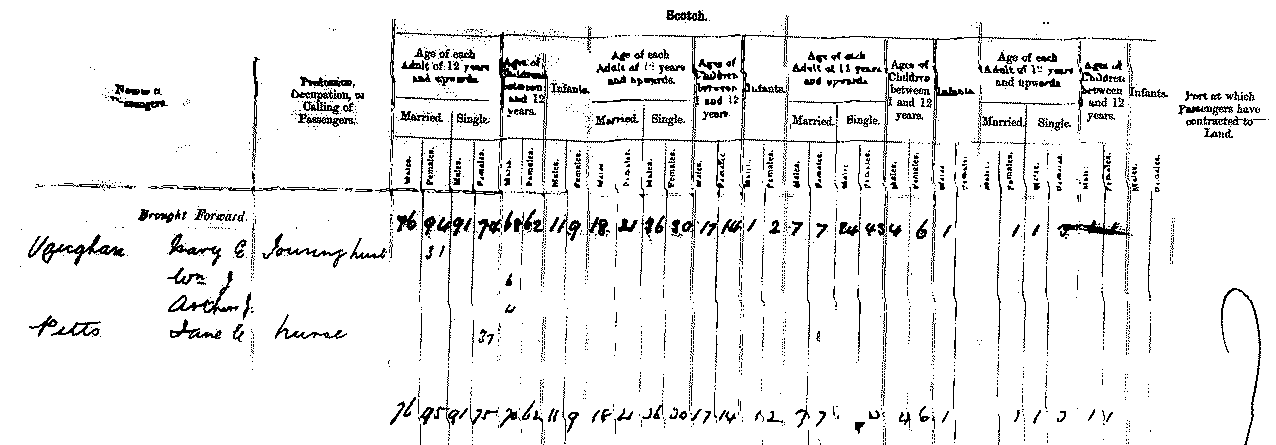 Scotch.
Names of Passengers.
Profession, Occupation, or Calling of Passengers.
Age of each Adult of 12 years and upwards.
Ages of Children between 1 and 12 years.
Infants.
Age of each Adult of 12 years and upwards.
Ages of Children between 1 and 12 years.
Infants.
Age of each Adult of 12 years and upwards.
Ages of Children between 1 and 12 years.
Infants.
Age of each Adult of 12 years and upwards.
Ages of Children between 1 and 12 years.
Infants.
Port at which Passengers have contracted to Land.
Married. Single. Married. Single. Married. Single. Married. Single.
Males. Females. Males. Females. Males. Females. Males. Females. Males. Females. Males. Females. Males. Females. Males. Females. Males. Females. Males. Females. Males. Females. Males. Females. Males. Females. Males. Females. Males. Females. Males. Females.
Brought Forward. 76 94 91 74 68 62 11 9 18 21 36 30 17 14 1 2 7 7 24 43 4 6 1 1 1
Vaughan Mary E 31
Wm J 6
Arthur J. 4
Petts Jane E nurse 37
76 95 91 75 70 62 11 9 18 21 36 30 17 14 1 2 7 7 4 6 1 1 1 1 1